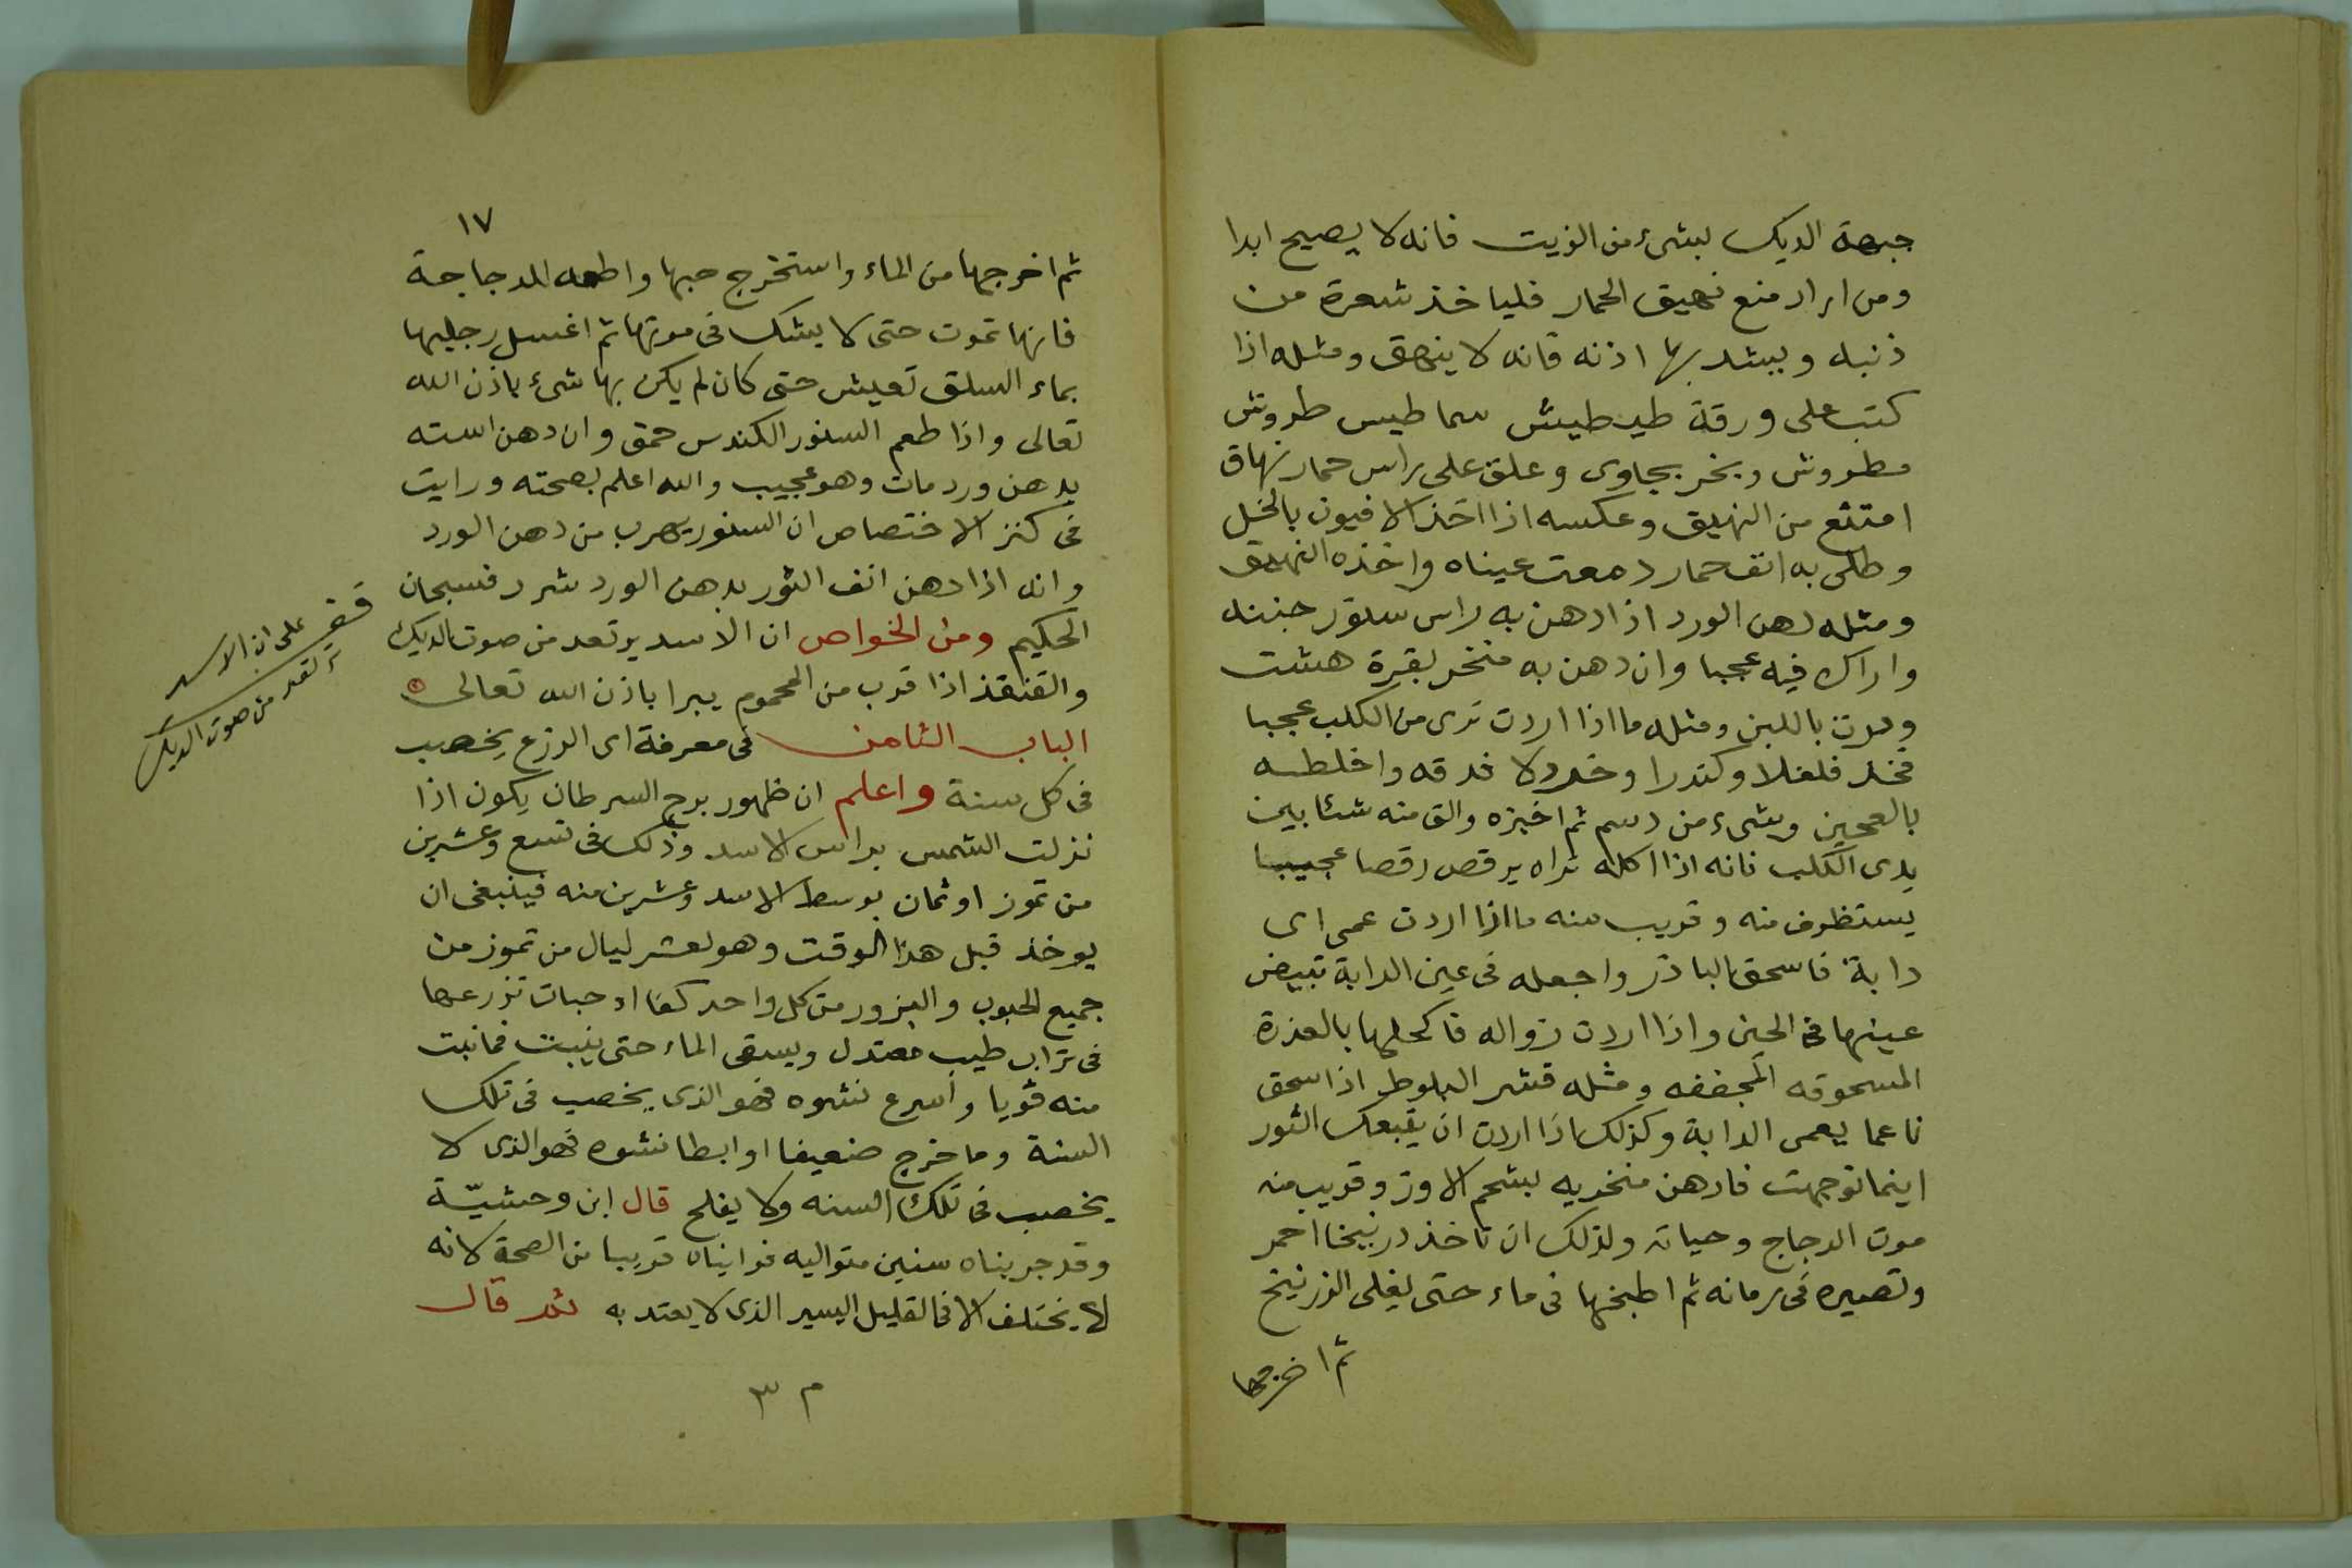 جبهة الديك بشىء من الزيت فانه لا يصيح ابدا
ومن اراد منع نهيق الحمار فلياخذ شعرة من
ذنبه ويشد بها اذنه فانه لا ينهق ومثله اذا
كتب على ورقة طيطيش سماطيس طروش
مطروش وبخر بجاوى وعلق على راس حمار نهاق
امتنع من النهيق وعكسه اذا اخذ الافيون بالخل
وطلى به انف حمار دمعت عيناه واخذه النهيق
ومثله دهن الورد اذا دهن به راس سنور جننه
واراك فيه عجبا وان دهن به منخر بقرة هشت
ودرت باللبن ومثله ما اذا اردت ترى من الكلب عجبا
فخذ فلفلا وكندرا وخردلا فدقه واخلطه
بالعجين وبشىء من دسم ثم اخبزه والق منه شئا بين
يدى الكلب فانه اذا اكله تراه يرقص رقصا عجيبا
يستظرف منه وقريب منه ما اذا اردت عمى اى
دابة فاسحق الباذر واجعله فى عين الدابة تبيض
عينها فى الحين واذا اردت زواله فاكحلها بالعذرة
المسحوقه المجففه ومثله قشر البلوط اذا سحق
ناعما يعمى الدابة وكذلك اذا اردت ان يتبعك الثور
اينما توجهت فادهن منخريه بشحم الاوز وقريب منه
موت الدجاج وحياته ولذلك ان تاخذ درنيخا احمر
وتصيره فى رمانه ثم اطبخها فى ماء حتى يغلى الزرنيخ
ثم اخرجها
١٧
ثم اخرجها من الماء واستخرج حبها واطعمه للدجاجة
فانها تموت حتى لا يشك فى موتها ثم اغسل رجليها
بماء السلق تعيش حتى كان لم يكن بها شىء باذن الله
تعالى واذا طعم السنور الكندس حمق وان دهن استه
بدهن ورد مات وهو عجيب والله اعلم بصحته ورايت
فى كنز الاختصاص ان السنور يهرب من دهن الورد
وانه اذا دهن انف الثور بدهن الورد شرد فسبحان
الحكيم ومن الخواص ان الاسد يرتعد من صوت الديك
والقنفذ اذا قرب من المحموم يبرا باذن الله تعالى
الباب الثامن فى معرفة اى الزرع يخصب
فى كل سنة واعلم ان ظهور برج السرطان يكون اذا
نزلت الشمس براس الاسد وذلك فى تسع وعشرين
من تموز او ثمان بوسط الاسد وعشرين منه فينبغى ان
يوخذ قبل هذا الوقت وهو لعشر ليال من تموز من
جميع الحبوب والبزور من كل واحد كفا او حبات تزرعها
فى تراب طيب معتدل ويسقى الماء حتى ينبت فما نبت
منه قويا واسرع نشوه فهو الذى يخصب فى تلك
السنة وما خرج ضعيفا او ابطا نشوه فهو الذى لا
يخصب فى تلك السنه ولا يفلح قال ابن وحشيّة
وقد جربناه سنين متواليه فراينا قريبا من الصحة لانه
لا يختلف الا فى القليل اليسير الذى لا يعتد به ثم قال
على ان الاسد
من صوت الديك
م ٣